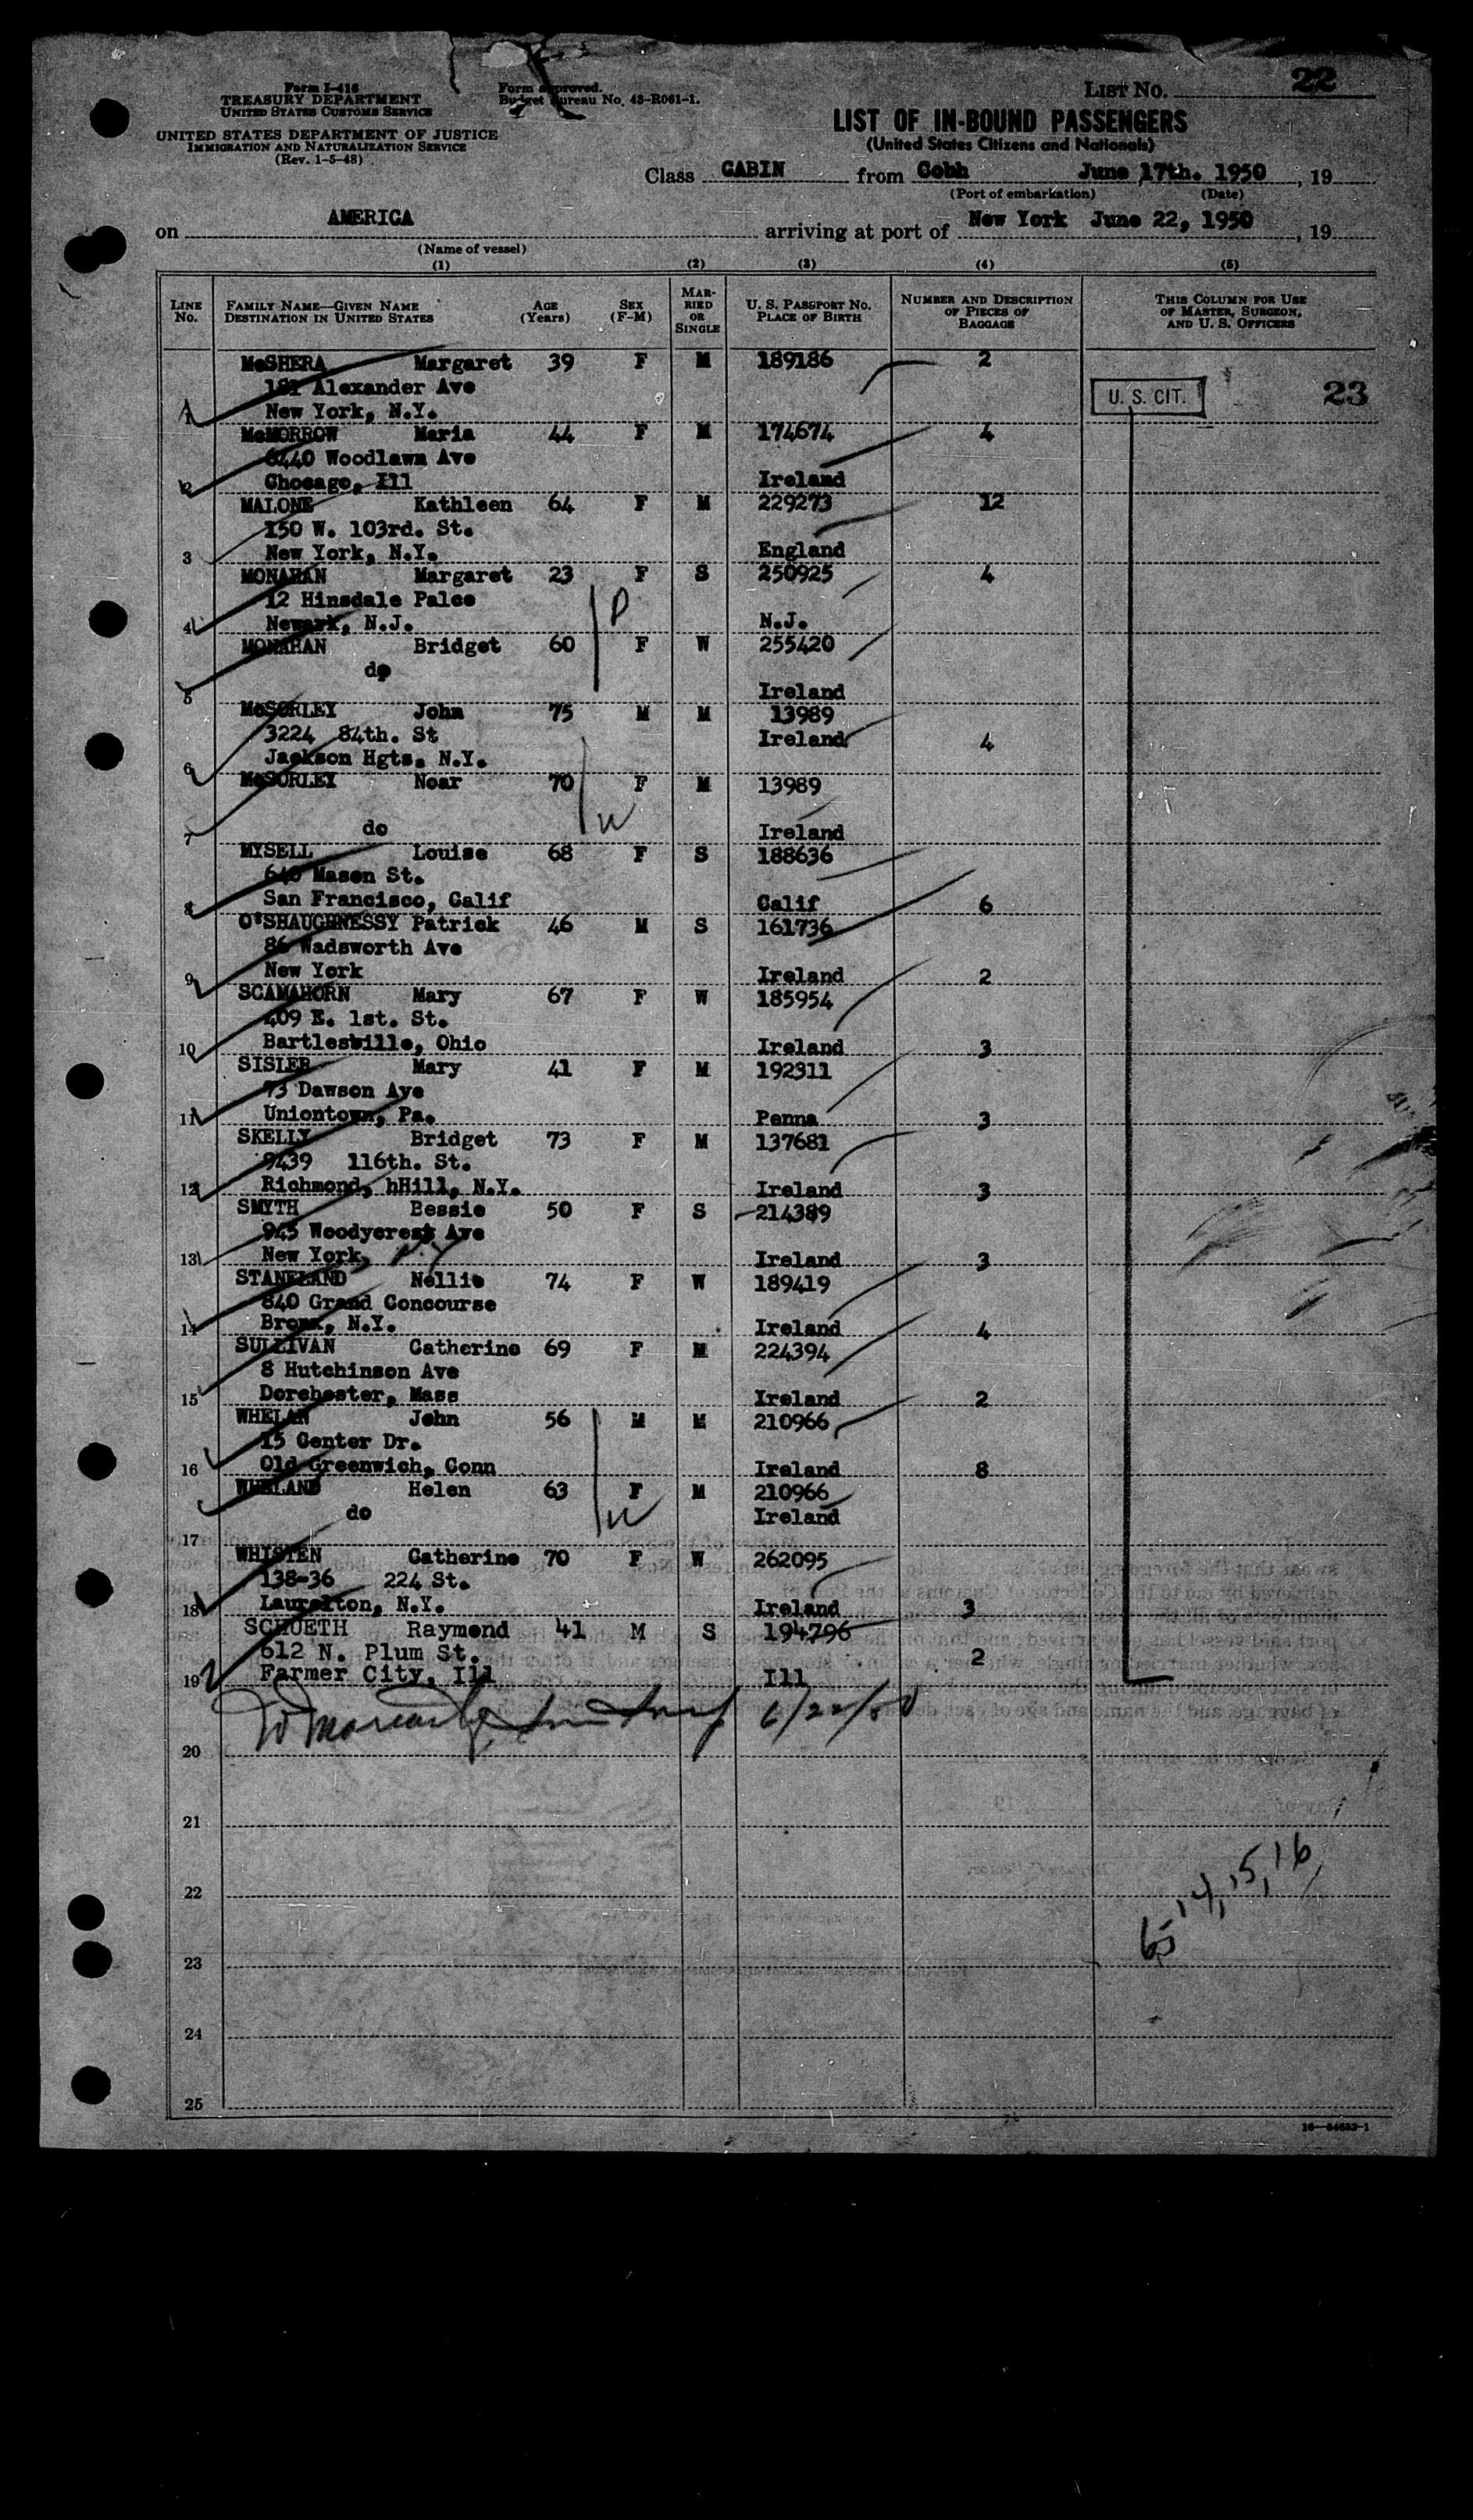 Form I-416
TREASURY DEPARTMENT
UNITED STATES CUSTOMS SERVICE
UNITED STATES DEPARTMENT OF JUSTICE
IMMIGRATION AND NATURALIZATION SERVICE
(Rev. 1-5-48)
Form approved.
Budget Bureau No. 43-R061-1.
LIST NO. 22
LIST OF IN-BOUND PASSENGERS
(United States Citizens and Nationals)
Class CABIN from Cobh June 17th. 1950, 19
(Port of embarkation) (Date)
on AMERICA arriving at port of New York June 22, 1950, 19
(Name of vessel)
(1) (2) (3) (4) (5)
LINE NO. FAMILY NAME—GIVEN NAME DESTINATION IN UNITED STATES AGE (Years) SEX (F-M) MARRIED OR SINGLE U. S. PASSPORT NO. PLACE OF BIRTH NUMBER AND DESCRIPTION OF PIECES OF BAGGAGE THIS COLUMN FOR USE OF MASTER, SURGEON, AND U. S. OFFICERS
McSHERA Margaret 39 F M 189186 2
181 Alexander Ave U. S. CIT. 23
1 New York, N.Y.
McMORROW Maria 44 F M 174674 4
6440 Woodlawn Ave
2 Chosago, Ill Ireland
MALONE Kathleen 64 F M 229273 12
150 W. 103rd. St.
3 New York, N.Y. England
MONAHAN Margaret 23 F S 250925 4
12 Hinsdale Palce P
4 Newark, N.J. N.J.
MONAHAN Bridget 60 F W 255420
do
5 Ireland
McSORLEY John 75 M M 13989
3224 84th. St Ireland 4
6 Jackson Hgts. N.Y.
McSORLEY Noar 70 F M 13989
W
7 do Ireland
MYSELL Louise 68 F S 188636
640 Mason St.
8 San Francisco, Calif Calif 6
O'SHAUGHNESSY Patrick 46 M S 161736
86 Wadsworth Ave
9 New York Ireland 2
SCAMAHORN Mary 67 F W 185954
409 E. 1st. St.
10 Bartlesville, Ohio Ireland 3
SISLER Mary 41 F M 192311
73 Dawson Ave
11 Uniontown, Pa. Penna 3
SKELLY Bridget 73 F M 137681
9439 116th. St.
12 Richmond, hHill, N.Y. Ireland 3
SMYTH Bessie 50 F S 214389
945 Woodycrest Ave
13 New York, N.Y Ireland 3
STANELAND Nellie 74 F W 189419
840 Grand Concourse
14 Bronx, N.Y. Ireland 4
SULLIVAN Catherine 69 F M 224394
8 Hutchinson Ave
15 Dorchester, Mass Ireland 2
WHELAN John 56 M M 210966
15 Center Dr.
16 Old Greenwich, Conn Ireland 8
WHELAND Helen 63 F M 210966
do W Ireland
17
WHISTEN Catherine 70 F W 262095
138-36 224 St.
18 Laurelton, N.Y. Ireland 3
SCHUETH Raymond 41 M S 194796
612 N. Plum St. 2
19 Farmer City, Ill Ill
6/22/50
20
21
14, 15, 16
22
65
23
24
25